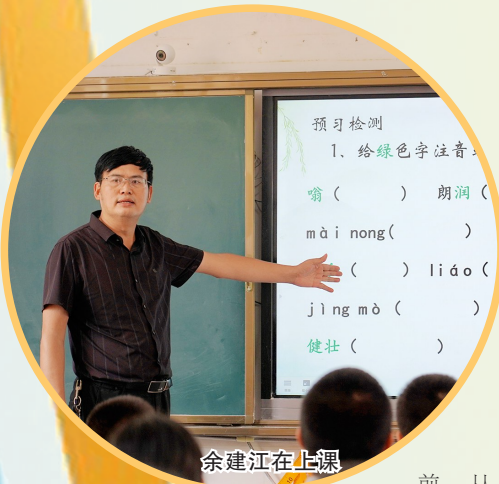 预习检测
1、给绿色字注音
嗡（ ） 朗润（
mài nong( )
（ ） liáo（
jìng mò（ ）
健壮（ ）
余建江在上课